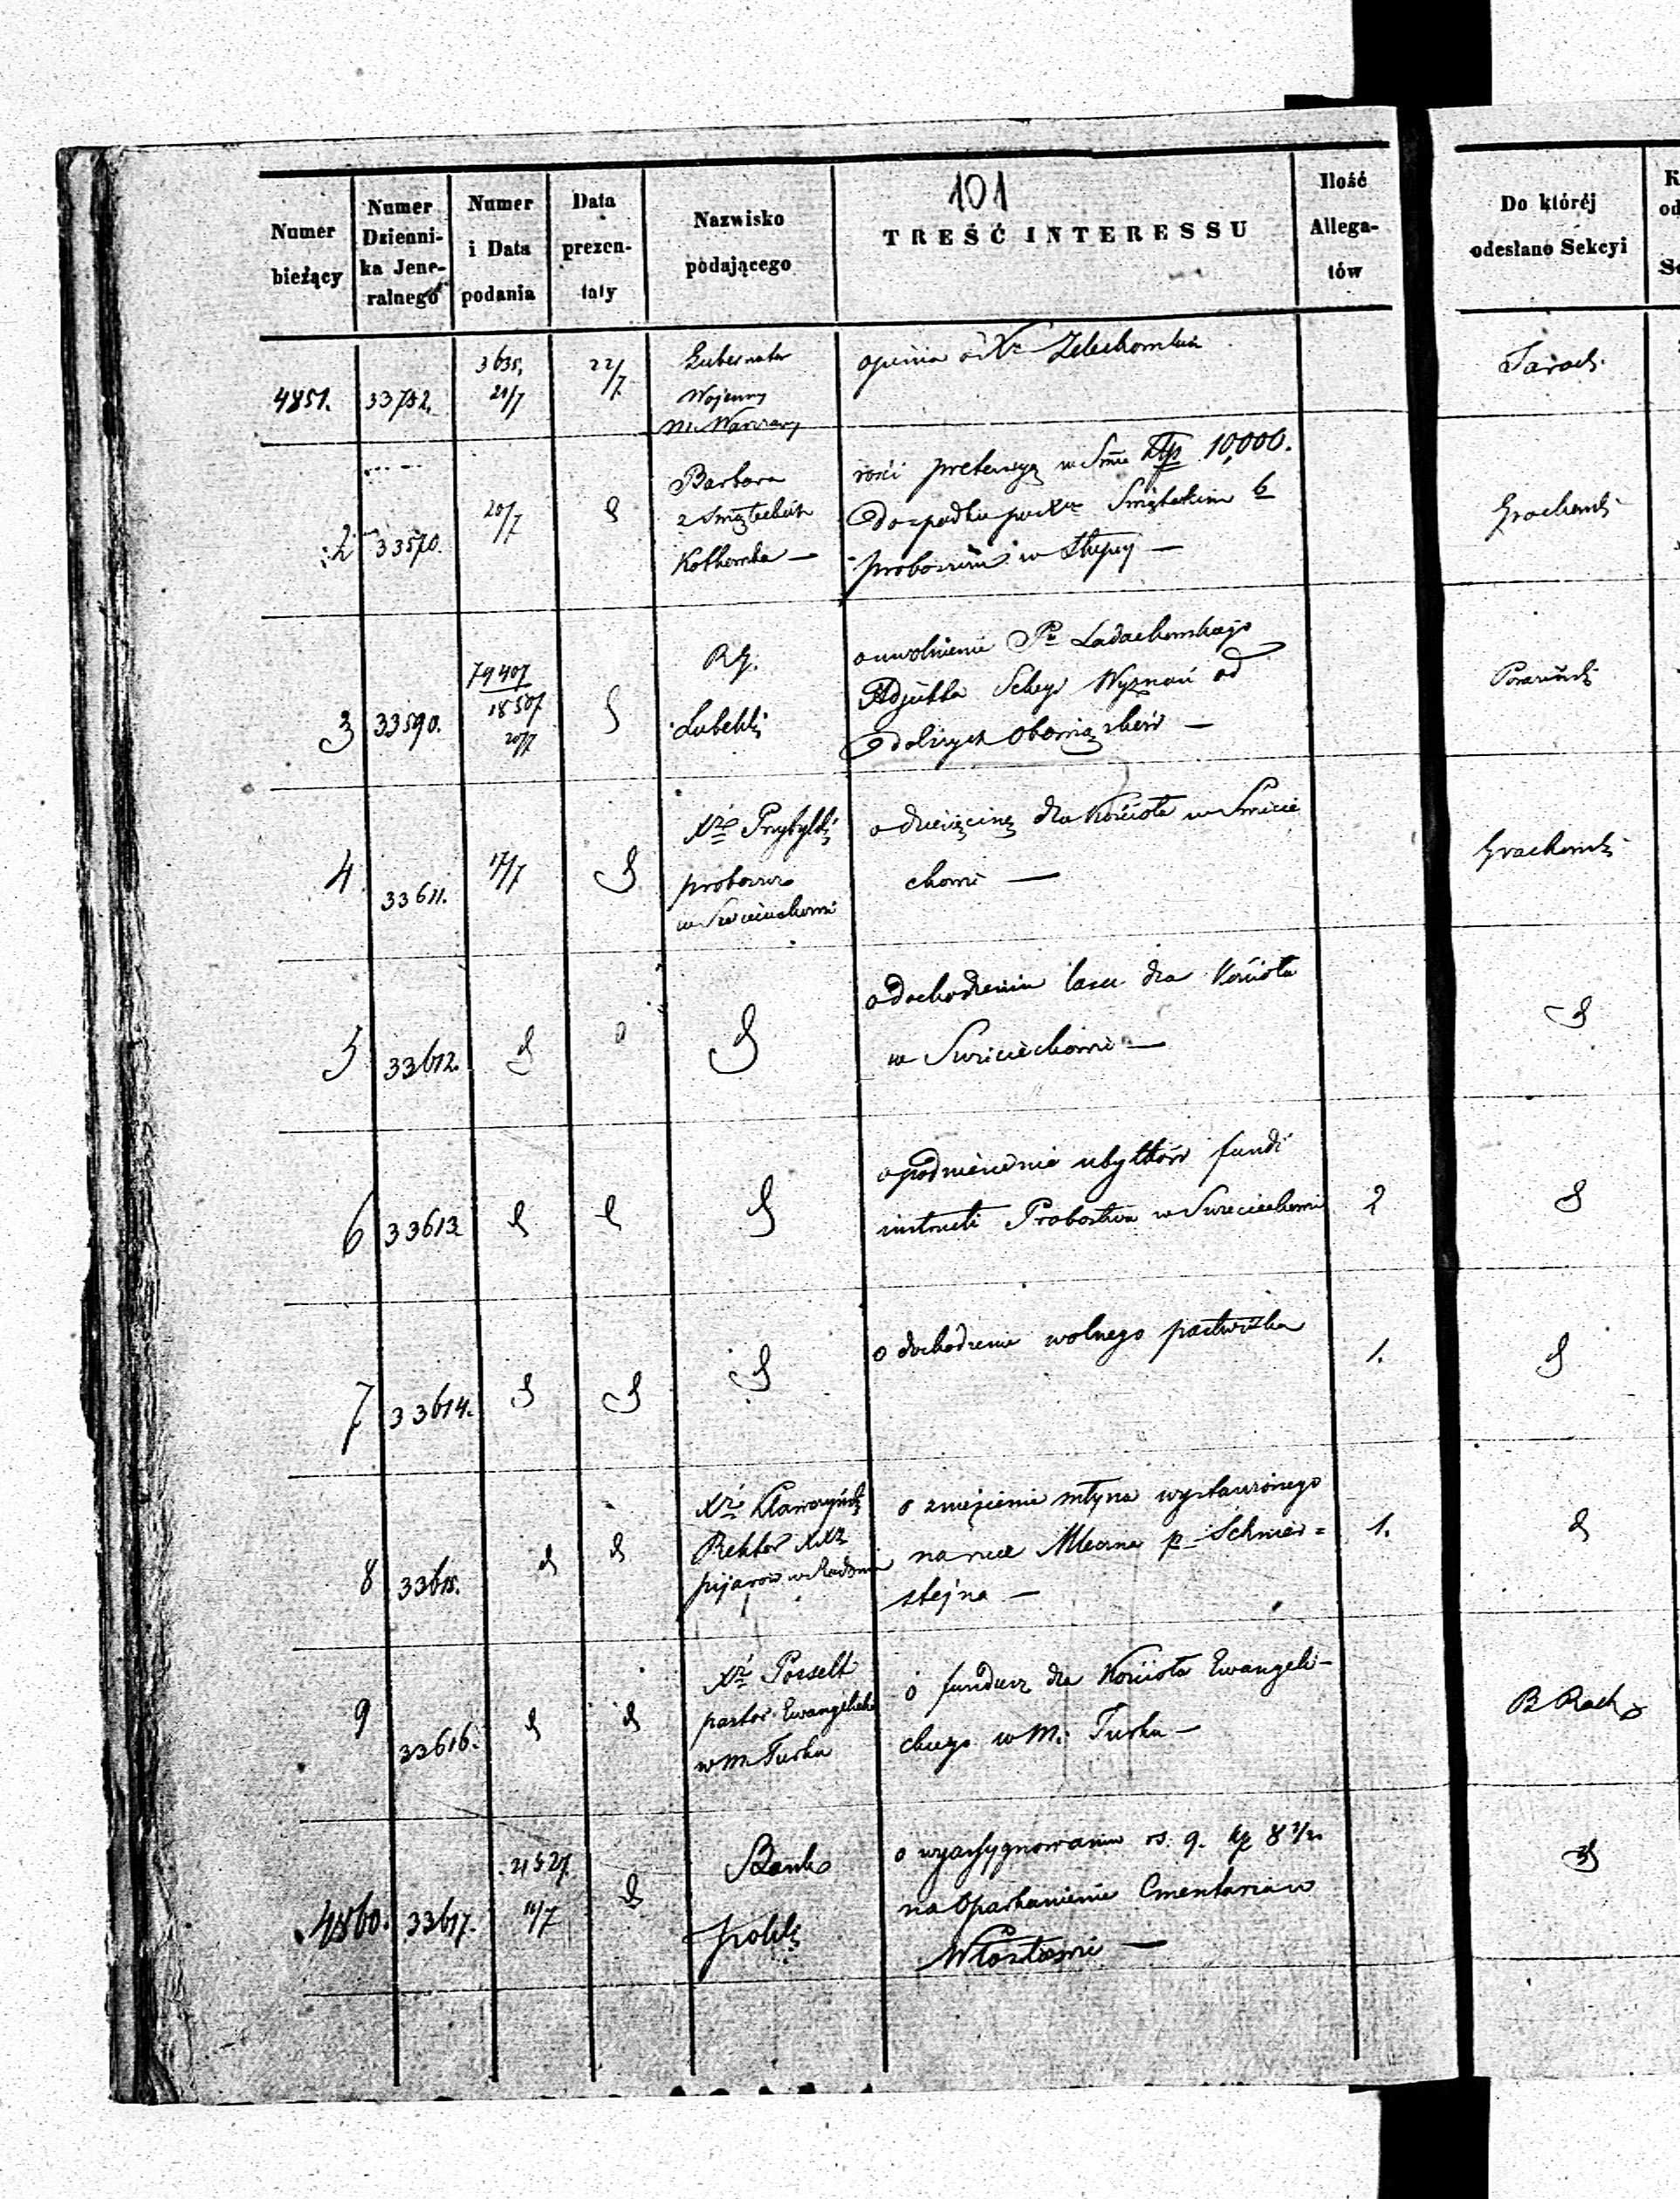 101
Numer bieżący
Numer Dzienni- ka Jene- ralnego
Numer i Data podania
Data prezen- taty
Nazwisko podającego
TREŚĆ INTERESSU
Ilość Allega- tów
Do któréj odesłano Sekcyi
4851. 33752. 3635, 21/7 22/7
Gubernator
Wojenny
m. Warszawy
opinia o Xr
2 33570. 20/7 d
Barbara
z
rości pretensyą w Smie Złp 10,000.
do spadku po Xr b
proboszczu w Słupcy —
3 33590. 79407 18507 20/7 d
R. G.
Lubelski
o uwolnienie Pa Ladachowskiego
Adjunkta Sekcyi Wyznań od
dalszych obowiązków —
4 33611. 17/7 d
Xr Przybylski
proboszcz
w Swieciechowie
o dziesięcinę dla Kościoła w Swiecie
chowie —
Grachowski
5 33612. d d d
o dochodzeniu lasu dla Kościoła
w Swieciechowie —
d
6 33613. d d d
o podniesienie ubytków fundi
instructi Probostwa w Swieciechowie
2 d
7 33614. d d d
o dochodzenie wolnego pastwiska
1. d
8 33615. d d
Xr
Rektor XX
pijarów w Radomiu
o zniesienie młyna wystawionego
na rzece Mleczna p.
1. d
9 33616. d d
Xr Posselt
pastor Ewangelicki
w m. Turku
o fundusz dla Kościoła Ewangeli-
ckiego w M. Turku —
4860. 33617. 21527. 11/7 d
Bank
polski
o wyassygnowaniu rs. 9. kp 8 1/2
na oparkanienie Cmentarza w
—